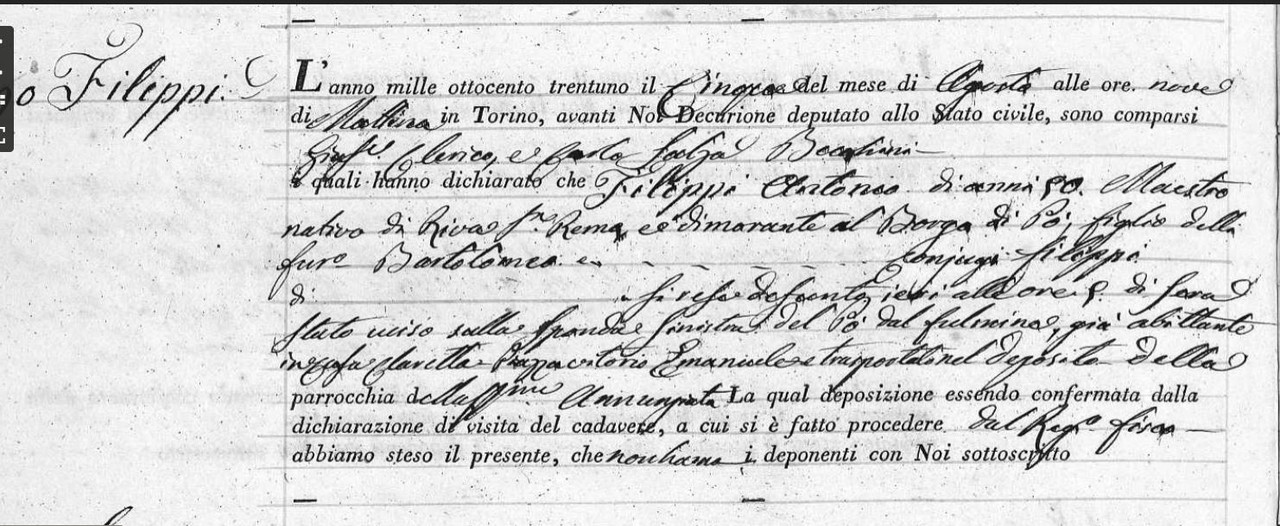 o Filippi.
L'anno mille ottocento trentuno il Cinque del mese di Agosto alle ore. nove
di Mattina in Torino, avanti Noi Decurione deputato allo Stato civile, sono comparsi
Clerico, e Carlo Becchini
i quali hanno dichiarato che Filippi Antonio di anni 50. Maestro
nativo di Riva Sn. Remo, e dimorante al Borgo di Pò, figlio delli
furo Bartolomeo e conjugi Filippi
di si rese defunto ieri alle ore 8. di sera
stato uciso sulla sponda sinistra del Pò dal fulmine, già abittante
in casa Claretta Piazza Vittorio Emanuele e trasportato nel deposito della
parrocchia della SSma Annunziata La qual deposizione essendo confermata dalla
dichiarazione di visita del cadavere, a cui si è fatto procedere dal Rego fisco
abbiamo steso il presente, che non hanno i deponenti con Noi sottoscritto